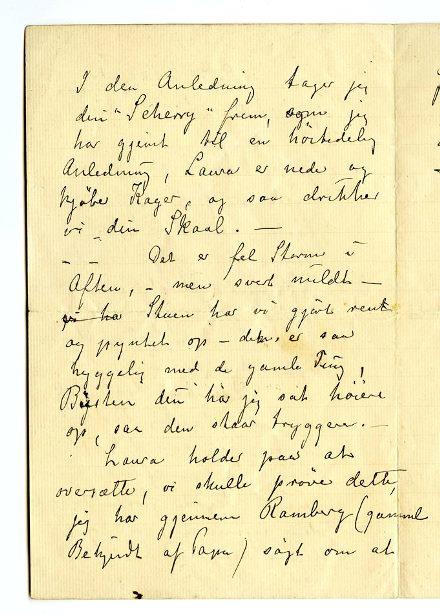 I den Anledning tager jeg
din "Scherry" frem, som jeg
har gjemt til en höitidelig
Anledning, Laura er nede og
kjöber Kager, og saa drikker
vi din Skaal. —
— — Det er fel Storm i
Aften, – men svært mildt –
vi ha Stuen har vi gjort rent
og pyntet op – den er saa
hyggelig med de gamle Ting,
Bysten din har jeg sat höiere
op, saa den staar tryggere. –
Laura holder paa at
oversætte, vi skulle pröve dette,
jeg har gjennem Ramberg (gammel
Bekjendt af Papa) sögt om at